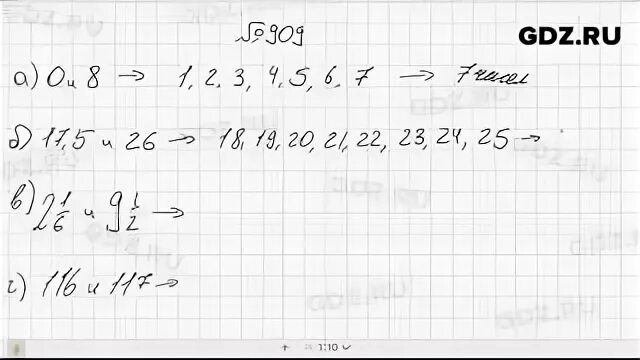 №909
GDZ.RU
а) 0 и 8 → 1, 2, 3, 4, 5, 6, 7 → 7 чисел
б) 17,5 и 26 → 18, 19, 20, 21, 22, 23, 24, 25 →
в) 2 1/6 и 9 1/2 →
г) 116 и 117 →
1:10